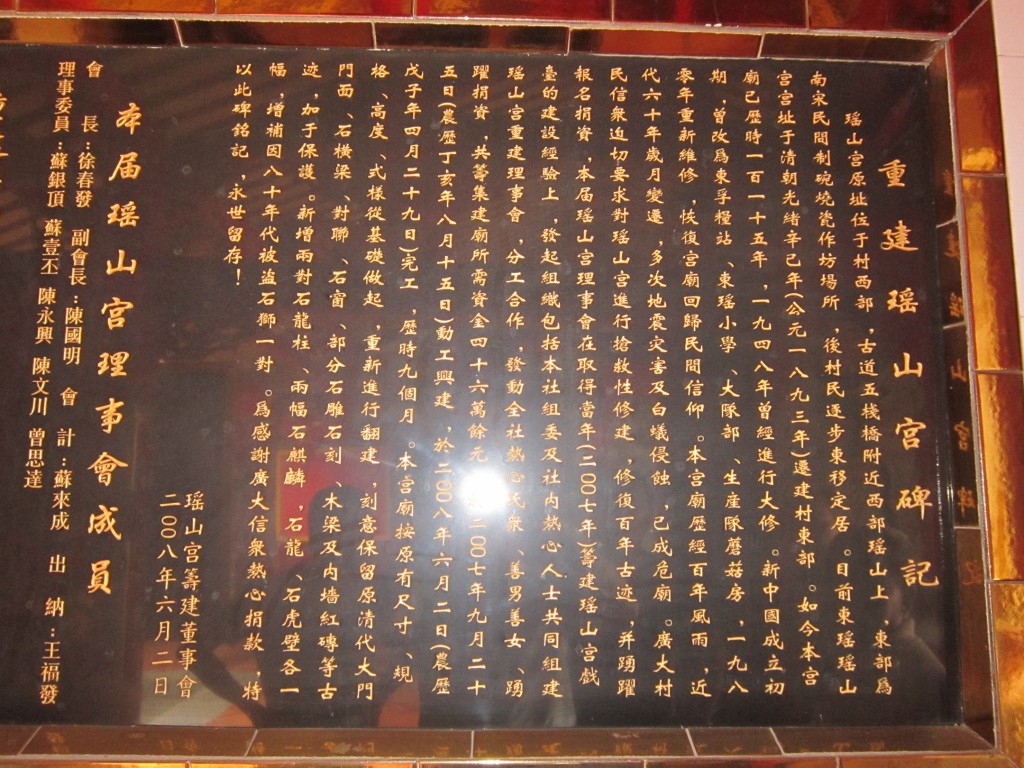 重建瑶山宫碑記
瑶山宫原址位于村西部，古道五棧橋附近西部瑶山上，東部爲
南宋民間制碗燒瓷作坊場所，後村民逐步東移定居。目前東瑶瑶山
宫宫址于清朝光緒辛已年(公元一八九三年)還建村東部。如今本宫
廟已歷時一百一十五年，一九四八年曾經進行大修。新中國成立初
期，曾改爲東孚糧站、東瑶小學、大隊部、生産隊蘑菇房，一九八
零年重新維修，恢復宫廟回歸民間信仰。本宫廟歷經百年風雨，近
代六十年歲月變遷，多次地震灾害及白蟻侵蝕，已成危廟。廣大村
民信衆迫切要求對瑶山宫進行搶救性修建，修復百年古迹，并踴躍
報名捐資，本届瑶山宫理事會在取得當年(二00七年)籌建瑶山宫戲
臺的建設經驗上，發起組織包括本社組委及社内熱心人士共同組建
瑶山宫重建理事會，分工合作，發動全社熱心民衆、善男善女、踴
躍捐資，共籌集建廟所需資金四十六萬餘元，二00七年九月二十
五日(農歷丁亥年八月十五日)動工興建，於二00八年六月二日(農歷
戊子年四月二十九日)完工，歷時九個月。本宫廟按原有尺寸、規
格、高度、式樣從基礎做起，重新進行翻建，刻意保留原清代大門
門面、石横梁、對聯、石窗、部分石雕石刻、木梁及内墙紅磚等古
迹，加于保護。新增兩對石龍柱、兩幅石麒麟，石龍、石虎壁各一
幅，增補因八十年代被盗石獅一對。爲感謝廣大信衆熱心捐款，特
以此碑銘記，永世留存！
瑶山宫籌建董事會
二00八年六月二日
本届瑶山宫理事會成員
會長：徐春發 副會長：陳國明 會計：蘇來成 出納：王福發
理事委員：蘇銀頂 蘇壹丕 陳永興 陳文川 曾思達